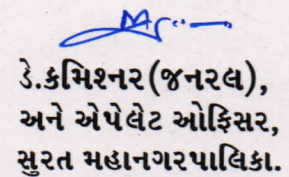 ડે.કમિશ્નર(જનરલ),
અને એપેલેટ ઓફિસર,
સુરત મહાનગરપાલિકા.